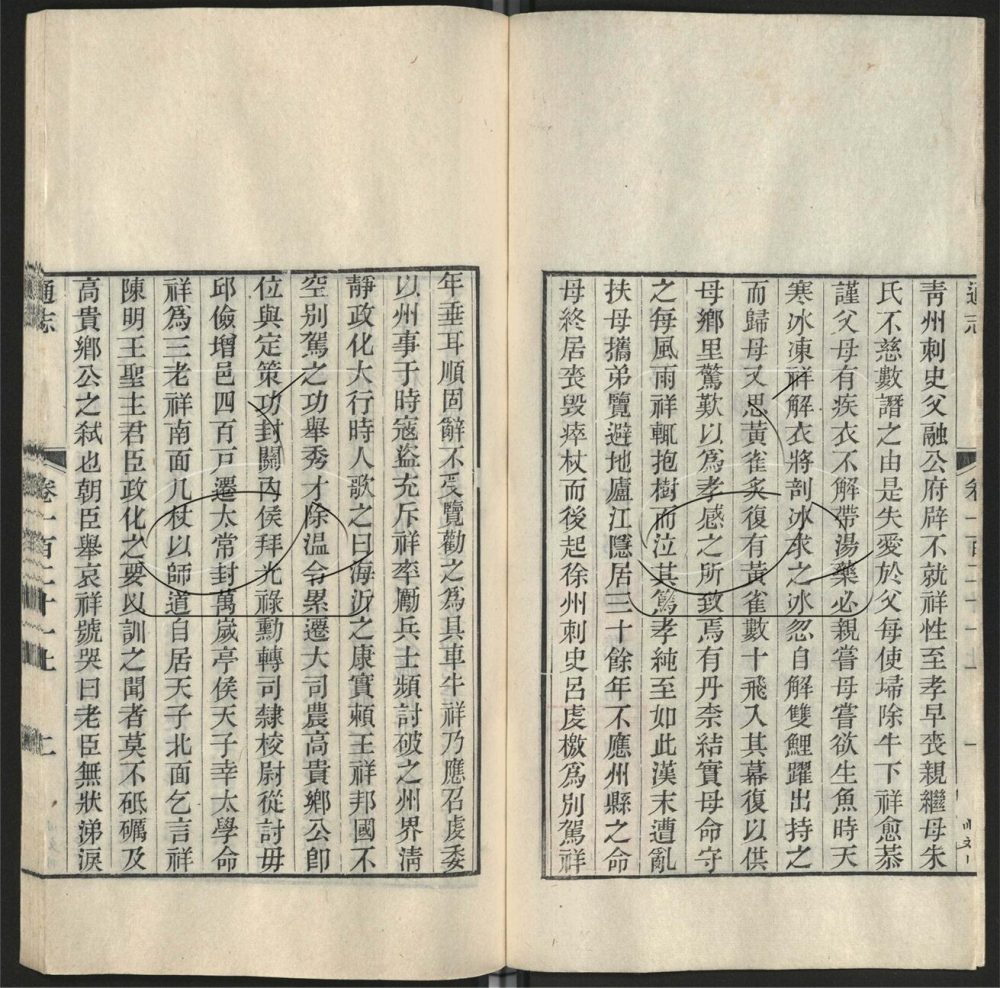 通志
青州刺史父融公府辟不就祥性至孝早喪親繼母朱
氏不慈數譖之由是失愛於父每使埽除牛下祥愈恭
謹父母有疾衣不解帶湯藥必親嘗母嘗欲生魚時天
寒冰凍祥解衣將剖冰求之冰忽自解雙鯉躍出持之
而歸母又思黃雀炙復有黃雀數十飛入其幕復以供
母鄉里驚歎以爲孝感之所致焉有丹柰結實母命守
之每風雨祥輒抱樹而泣其篤孝純至如此漢末遭亂
扶母攜弟覽避地廬江隱居三十餘年不應州縣之命
母終居喪毀瘁杖而後起徐州刺史呂虔檄爲別駕祥
年垂耳順固辭不受覽勸之爲具車牛祥乃應召虔委
以州事于時寇盜充斥祥率勵兵士頻討破之州界清
靜政化大行時人歌之曰海沂之康實賴王祥邦國不
空別駕之功舉秀才除温令累遷大司農高貴鄉公卽
位與定策功封關內侯拜光祿勳轉司隸校尉從討毋
邱儉增邑四百戸遷太常封萬歲亭侯天子幸太學命
祥爲三老祥南面几杖以師道自居天子北面乞言祥
陳明王聖主君臣政化之要以訓之聞者莫不砥礪及
高貴鄉公之弒也朝臣舉哀祥號哭曰老臣無狀涕淚
通志 卷一百二十一上 二